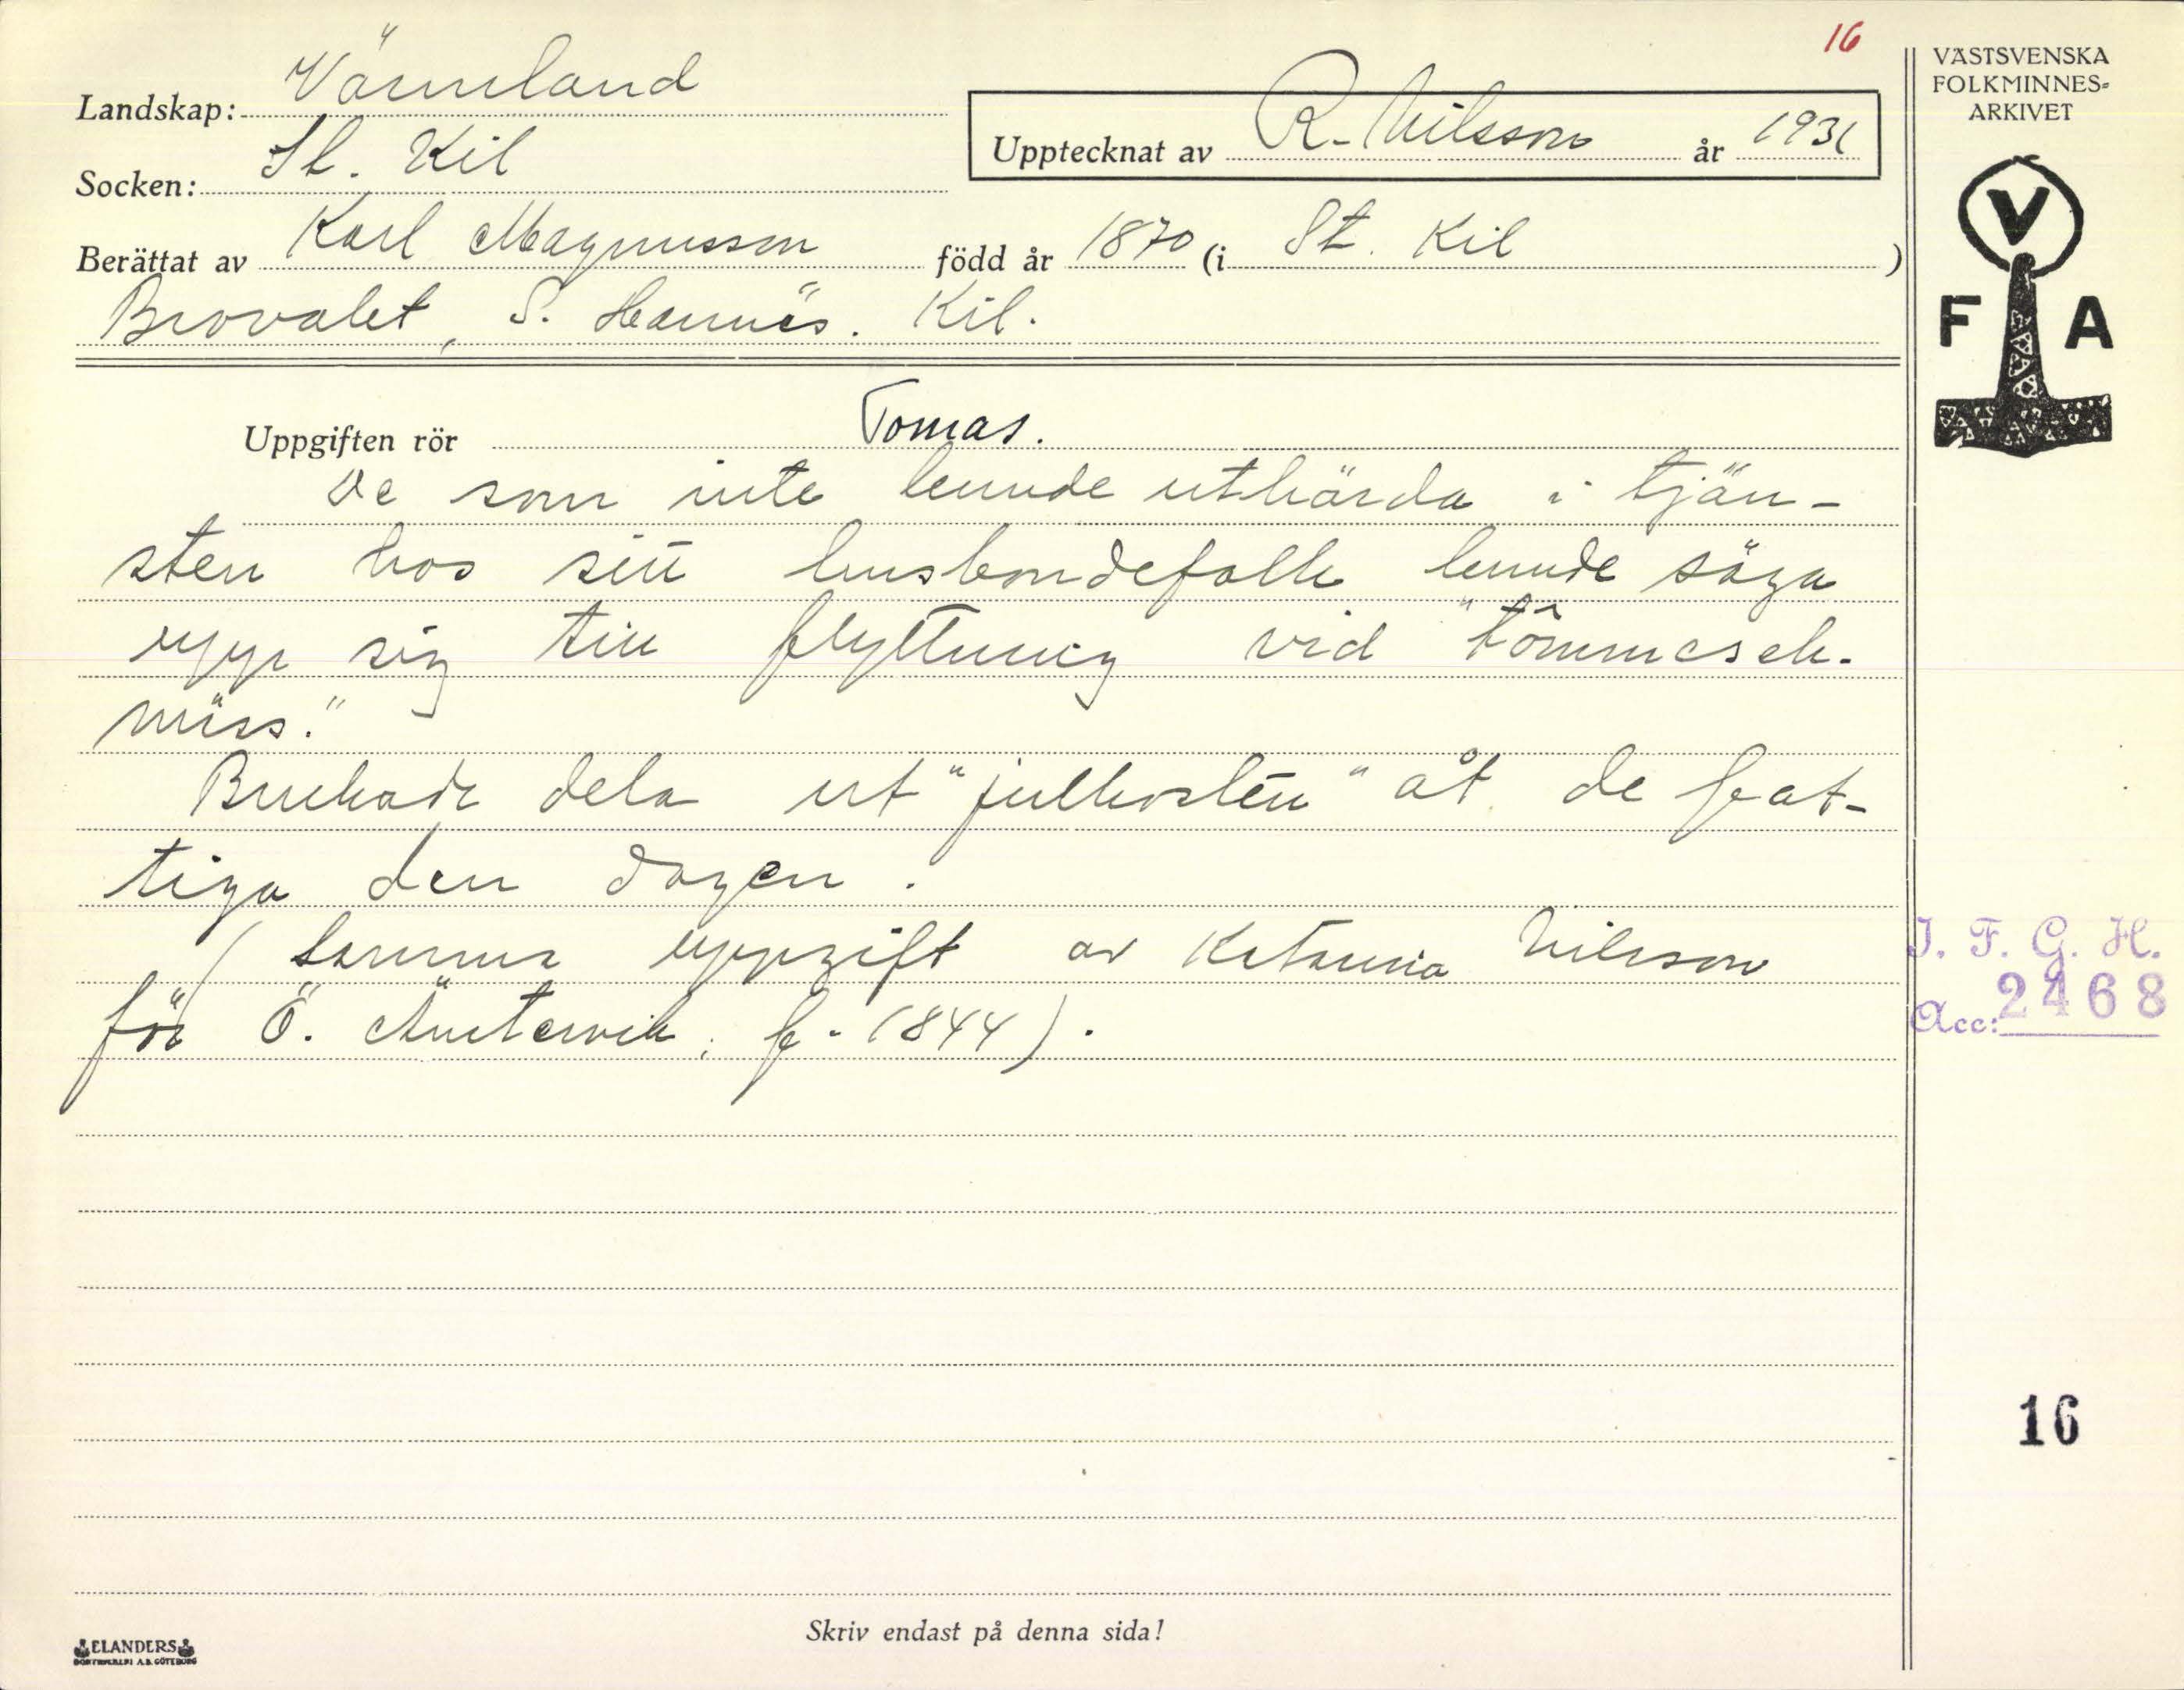 16
Landskap: Värmland
Socken: St. Kil
Upptecknat av R. Nilsson år 1931
Berättat av Karl Magnusson född år 1870 (i St. Kil )
Brovalet, S. Hannäs. Kil.
Uppgiften rör Tomas.
De som inte kunde uthärda i tjän-
sten hos sitt husbondefolk kunde säga
upp sig till flyttning vid "tômmesek-
miss."
Brukade dela ut "julkosten" åt de fat-
tiga den dagen.
(Samma uppgift av Katarina Nilsson
för Ö. Ämtervik, f. 1844).
Skriv endast på denna sida!
ELANDERS
BOKTRYCKERI A.B. GÖTEBORG
VÄSTSVENSKA
FOLKMINNES-
ARKIVET
V
F A
I. F. G. H.
Acc: 2468
16